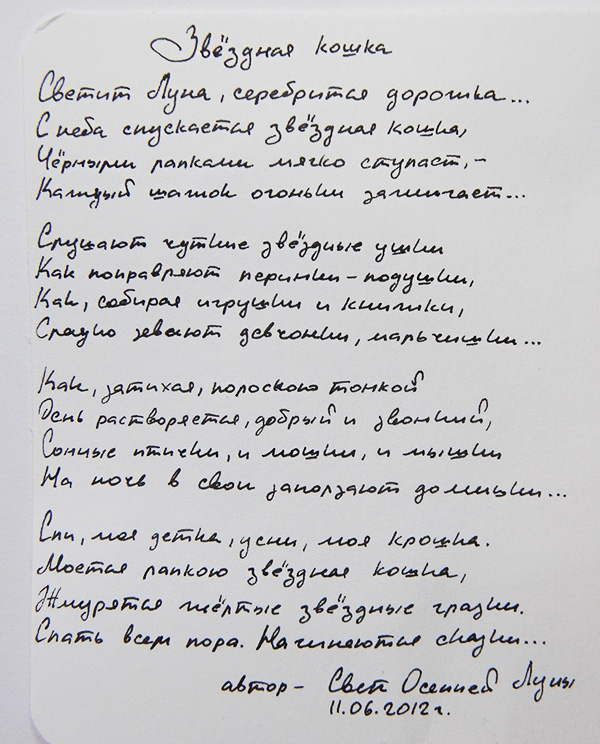 Звёздная кошка
Светит Луна, серебрится дорожка...
С неба спускается звёздная кошка,
Чёрными лапками мягко ступает,-
Каждый шажок огоньки зажигает...
Слушают чуткие звёздные ушки
Как поправляют перинки-подушки,
Как, собирая игрушки и книжки,
Сладко зевают девчонки, мальчишки...
Как, затихая, полоскою тонкой
День растворяется, добрый и звонкий,
Сонные птички, и мошки, и мышки
На ночь в свои заползают домишки...
Спи, моя детка, усни, моя крошка.
Моется лапкою звёздная кошка,
Жмурятся жёлтые звёздные глазки.
Спать всем пора. Начинаются сказки...
автор - Свет Осенней Луны
11.06.2012г.